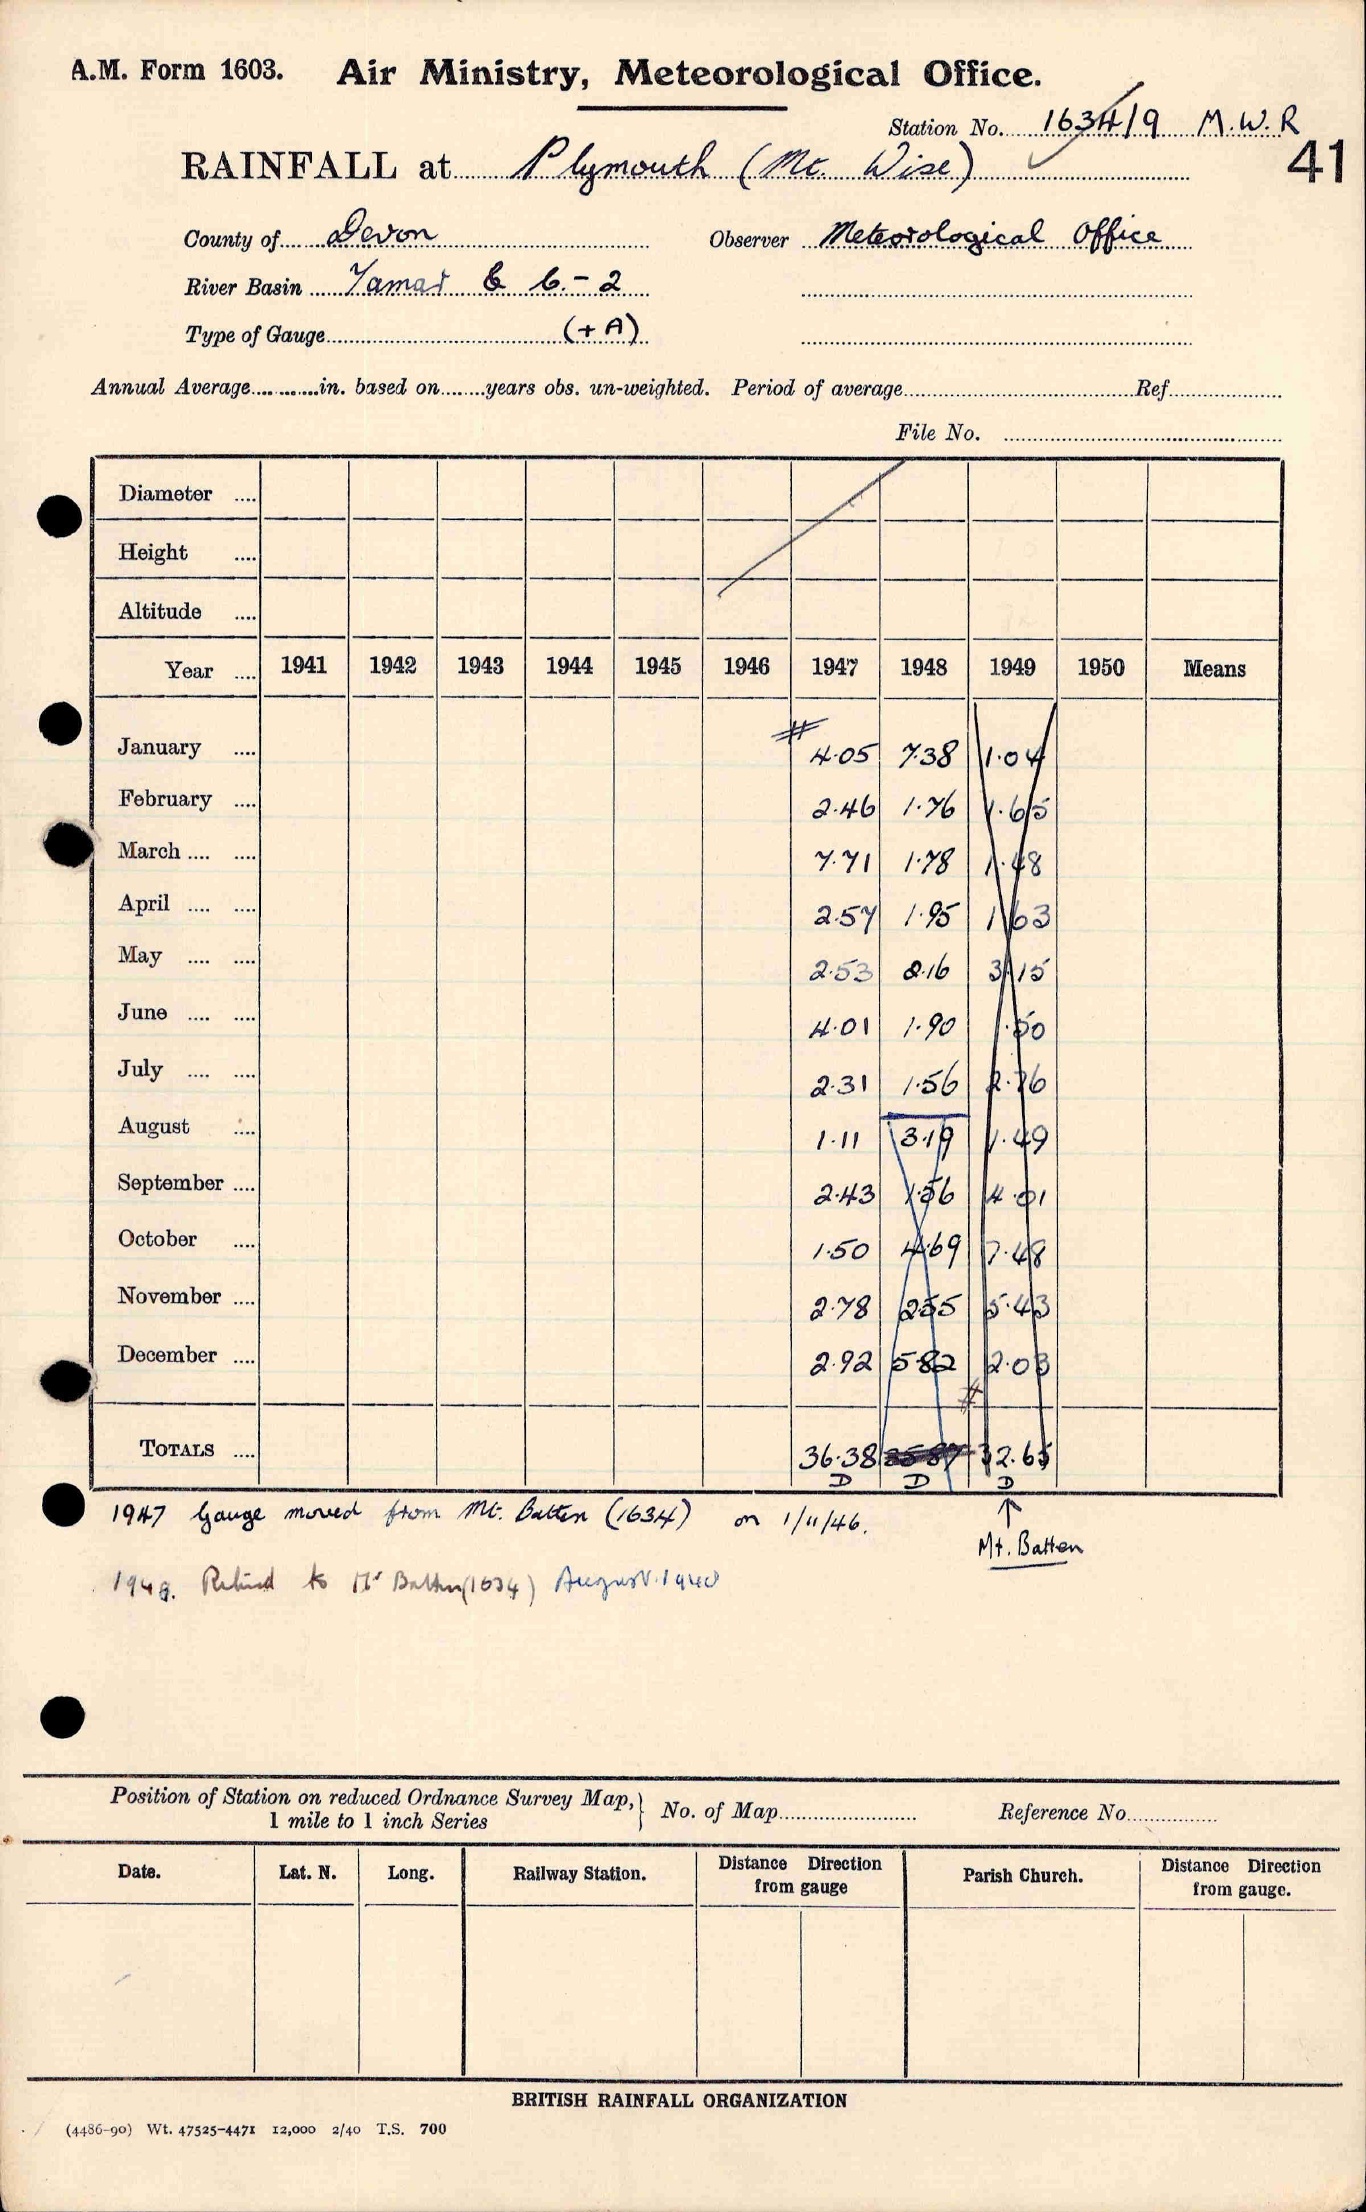 A.M. Form 1603. Air Ministry, Meteorological Office.
Station No. 1634/9 M.W.R
41
RAINFALL at Plymouth (Mt. Wise)
County of Devon Observer Meteorological Office
River Basin Tamar & C. - 2
Type of Gauge (+A)
Annual Average in. based on years obs. un-weighted. Period of average Ref
File No.
Diameter
Height
Altitude
Year 1941 1942 1943 1944 1945 1946 1947 1948 1949 1950 Means
January # 4.05 7.38 1.04
February 2.46 1.76 1.65
March 7.71 1.78 1.48
April 2.57 1.95 1.63
May 2.53 2.16 3.15
June 4.01 1.90 1.50
July 2.31 1.56 2.76
August 1.11 3.19 1.49
September 2.43 1.56 4.01
October 1.50 4.69 7.48
November 2.78 2.55 5.43
December 2.92 5.82 2.03
#
TOTALS 36.38 32.65
D D D
1947 Gauge moved from Mt. Batten (1634) on 1/11/46. ↑
Mt. Batten
to Mt Batten (1634) August
Position of Station on reduced Ordnance Survey Map, } No. of Map Reference No.
1 mile to 1 inch Series
Date. Lat. N. Long. Railway Station. Distance Direction from gauge Parish Church. Distance Direction from gauge.
BRITISH RAINFALL ORGANIZATION
(4486-90) Wt. 47525-4471 12,000 2/40 T.S. 700